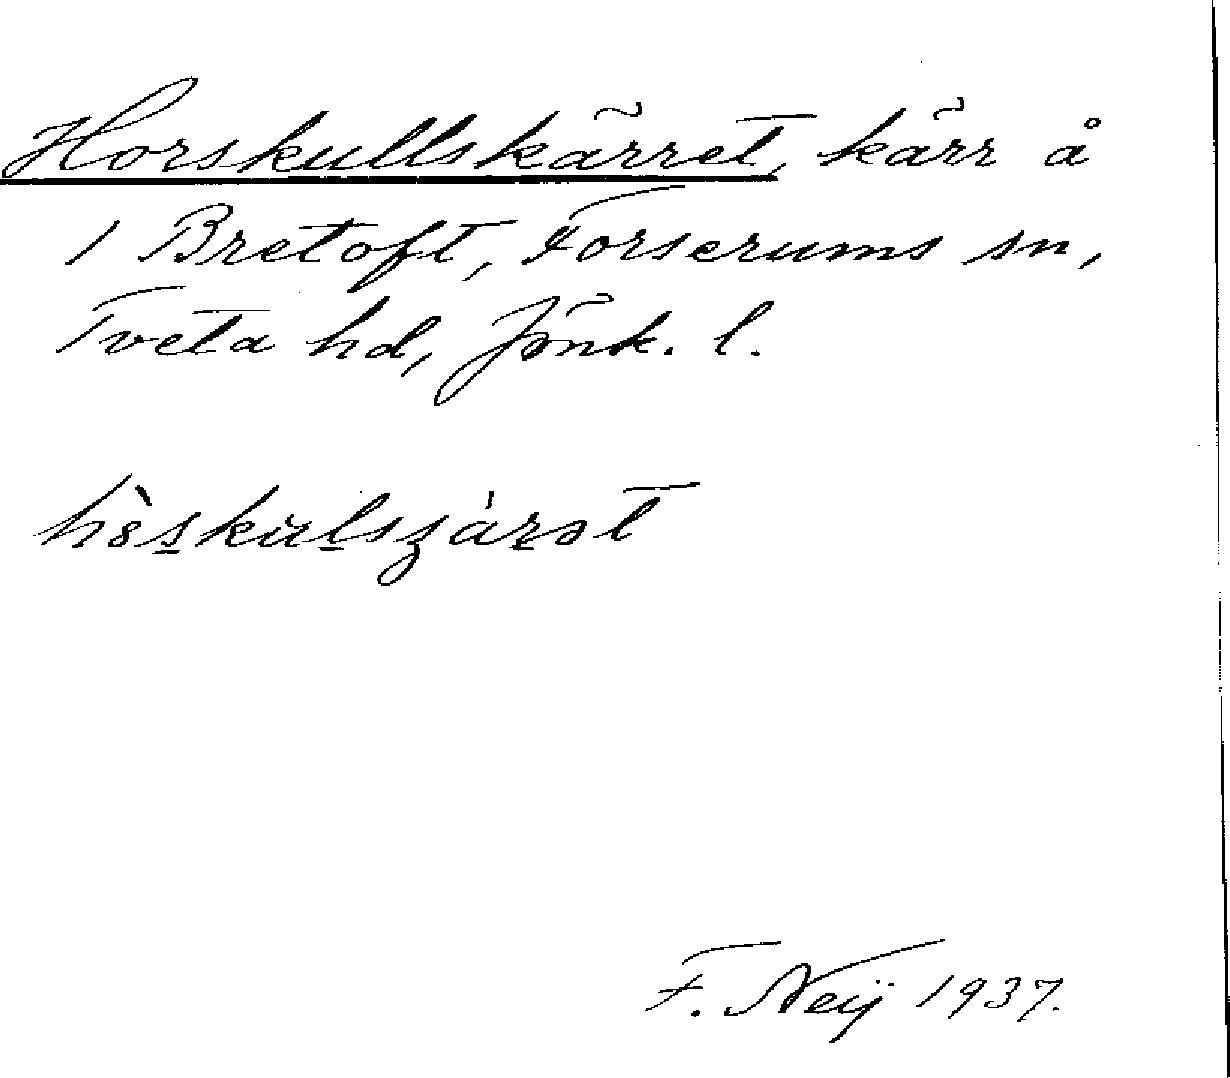 Horskullskärret, kärr å
1 Bretoft, Forserums sn,
Tveta hd, Jönk. l.
F. Neij 1937.